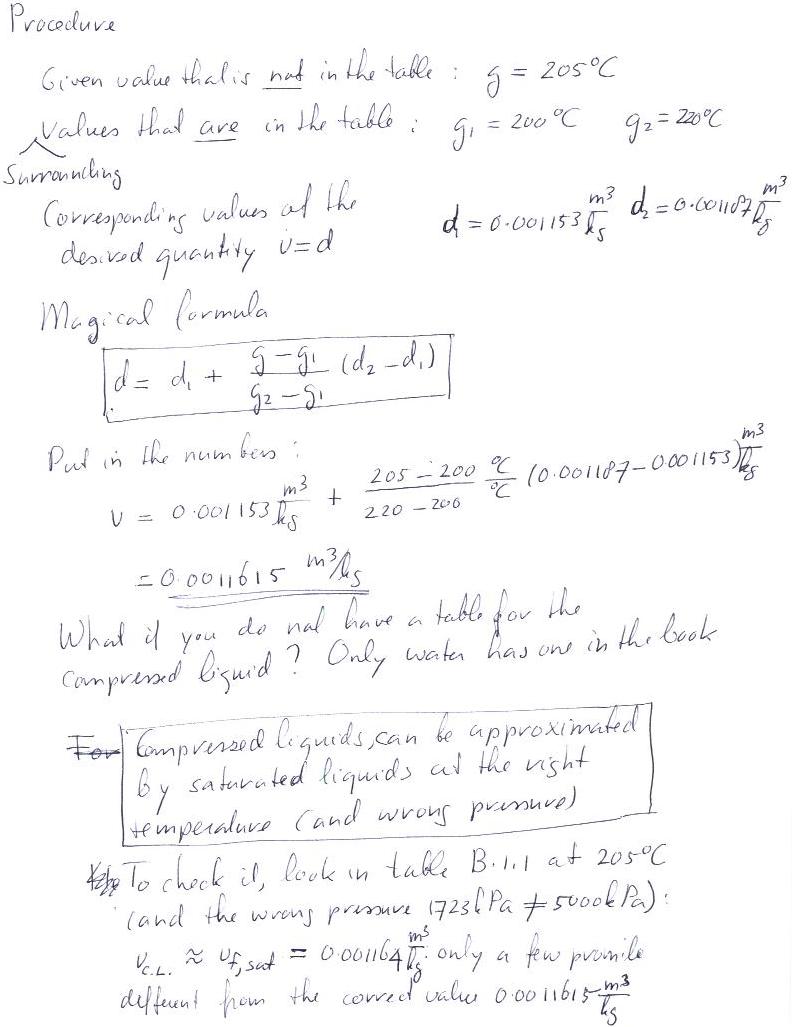 Procedure
Given value that is not in the table : g = 205°C
Values that are in the table : g₁ = 200°C g₂ = 220°C
Surrounding
Corresponding values of the d₁ = 0.001153 m³/kg d₂ = 0.001187 m³/kg
desired quantity v=d
Magical formula
d = d₁ + (g - g₁)/(g₂ - g₁) (d₂ - d₁)
Put in the numbers :
v = 0.001153 m³/kg + (205 - 200)/(220 - 200) °C/°C (0.001187 - 0.001153) m³/kg
= 0.0011615 m³/kg
What if you do not have a table for the
compressed liquid? Only water has one in the book
For Compressed liquids, can be approximated
by saturated liquids at the right
temperature (and wrong pressure)
To check it, look in table B.1.1 at 205°C
(and the wrong pressure 1723 kPa ≠ 5000 kPa) :
v_C.L. ≈ v_f,sat = 0.001164 m³/kg: only a few promile
different from the correct value 0.0011615 m³/kg